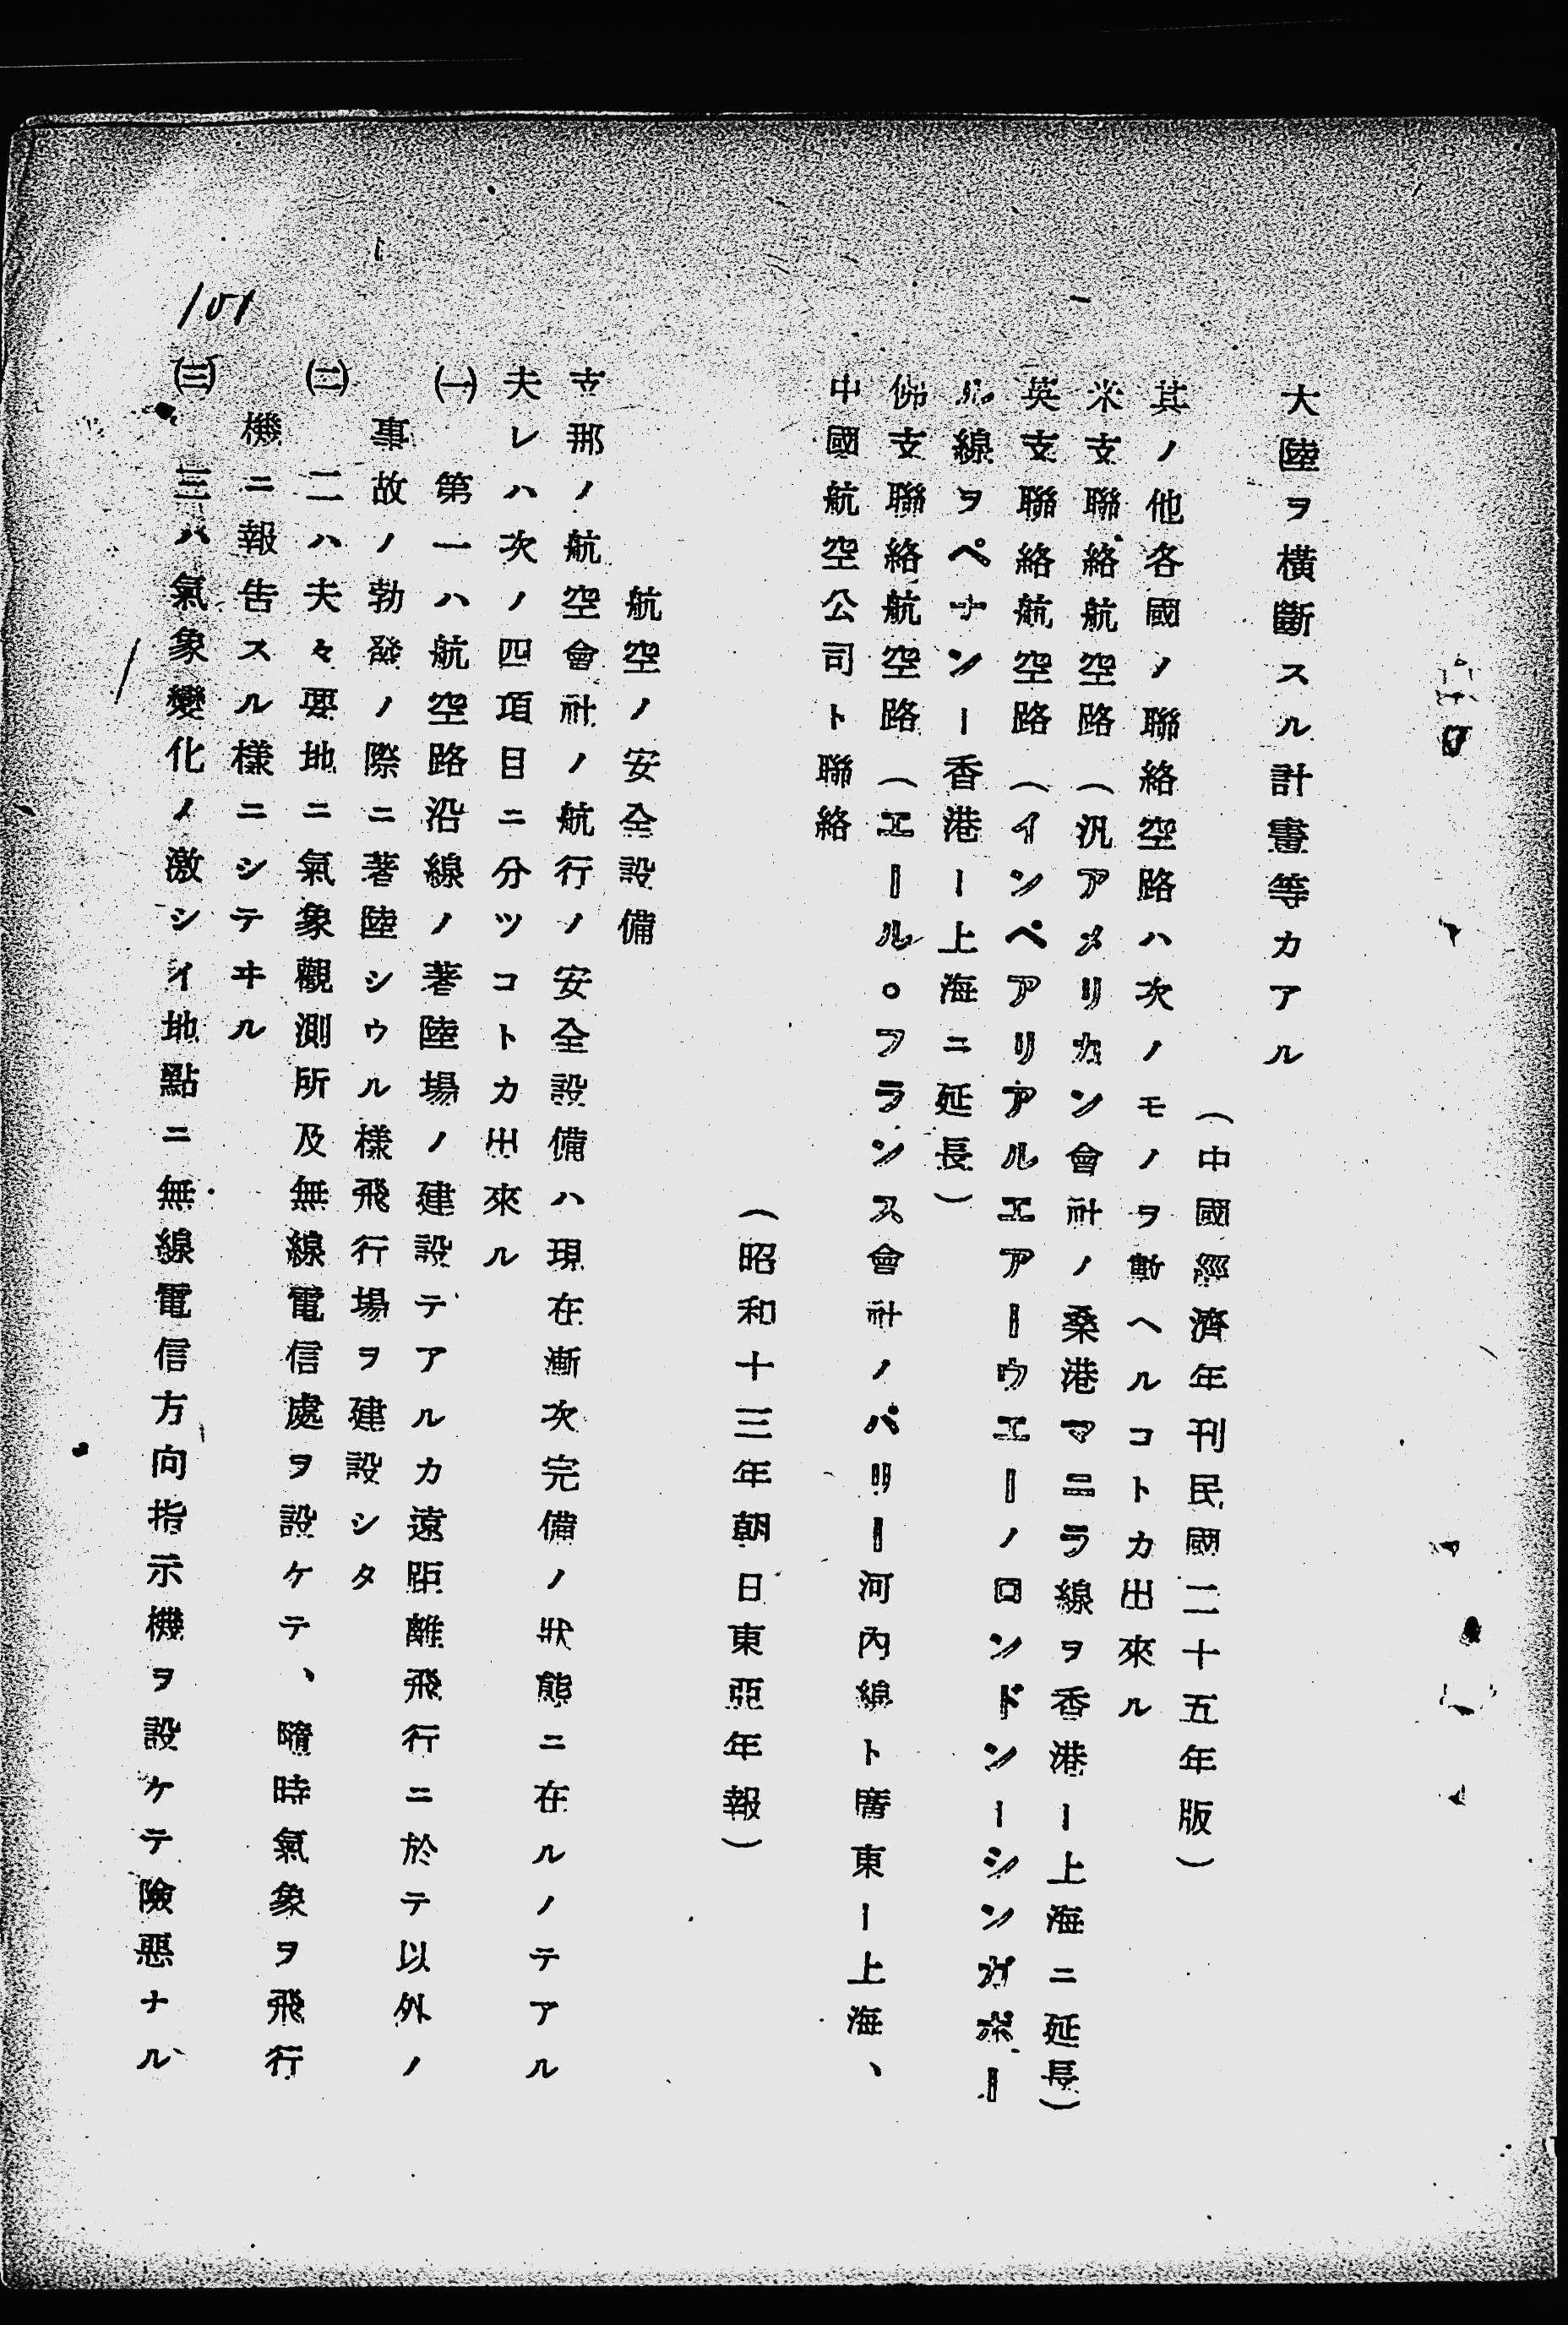 大陸ヲ橫斷スル計畫等カアル
(中國經濟年刊民國二十五年版)
其ノ他各國ノ聯絡空路ハ次ノモノヲ數ヘルコトカ出來ル
米支聯絡航空路(汎アメリカン會社ノ桑港マニラ線ヲ香港ー上海ニ延長)
英支聯絡航空路(インペアリアルエアーウエーノロンドンーシンガポー
ル線ヲペナンー香港ー上海ニ延長)
佛支聯絡航空路(エール。フランス會社ノパリー河內線ト廣東ー上海、
中國航空公司ト聯絡
(昭和十三年朝日東亞年報)
航空ノ安全設備
支那ノ航空會社ノ航行ノ安全設備ハ現在漸次完備ノ狀態ニ在ルノテアル
夫レハ次ノ四項目ニ分ツコトカ出來ル
㈠ 第一ハ航空路沿線ノ著陸場ノ建設テアルカ遠距離飛行ニ於テ以外ノ
事故ノ勃發ノ際ニ著陸シウル樣飛行場ヲ建設シタ
㈡ 二ハ夫々要地ニ氣象觀測所及無線電信處ヲ設ケテ、隨時氣象ヲ飛行
機ニ報告スル樣ニシテヰル
㈢ 三ハ氣象變化ノ激シイ地點ニ無線電信方向指示機ヲ設ケテ險惡ナル
101